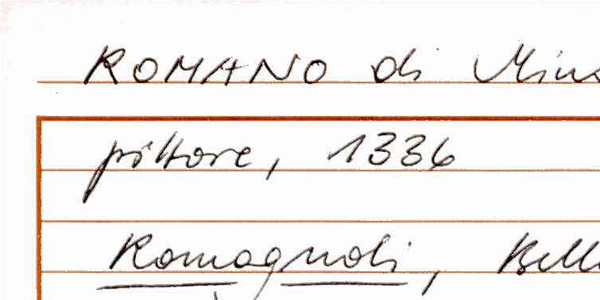 ROMANO di
pittore, 1336
Romagnoli,